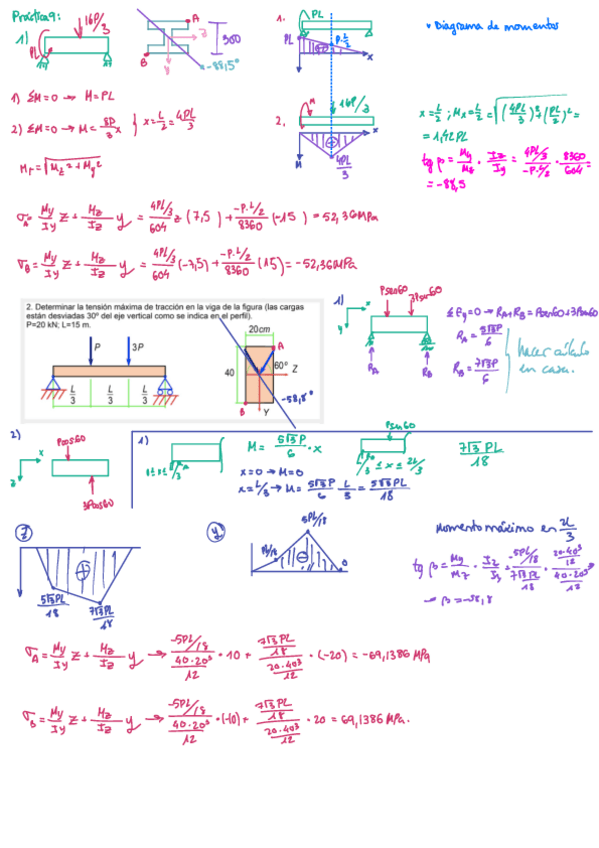 Práctica 9:
1)
16P/3
PL
A
B
z
y
300
-88,5°
1.
PL
PL
P·L/2
x
* Diagrama de momentos
1) ΣM=0 → M=PL
2) ΣM=0 → M= 8P/3 x } x=L/2 = 4PL/3
Mr = √Mz²+My²
2.
M
16P/3
x
M
4PL/3
x=L/2 ; Mx=L/2 = √(4PL/3)²+(PL/2)² =
= 1,42PL
tg β = My/Mz · Iz/Iy = 4PL/3/-P·L/2 · 8360/604 =
= -88,5
σA = My/Iy z + Mz/Iz y = 4PL/3/604 z (7,5) + -P·L/2/8360 (-15) = 52,36MPa
σB = My/Iy z + Mz/Iz y = 4PL/3/604 (-7,5) + -P·L/2/8360 (15) = -52,36MPa
2. Determinar la tensión máxima de tracción en la viga de la figura (las cargas
están desviadas 30º del eje vertical como se indica en el perfil).
P=20 kN; L=15 m.
P
3P
L/3
L/3
L/3
20cm
A
40
60º
Z
-58,8°
B
Y
1)
Psen60
3Psen60
x
y
RA
RB
ΣFy=0 → RA+RB = Psen60+3Psen60
RA = 5√3P/6
RB = 7√3P/6
hacer cálculo
en casa.
2)
x
z
Pcos60
3Pcos60
1)
M = 5√3P/6 · x
x=0 → M=0
x=L/3 → M= 5√3P/6 · L/3 = 5√3PL/18
Psen60
L/3 ≤ x ≤ 2L/3
7√3PL/18
z
5√3PL/18
7√3PL/18
y
PL/18
5PL/18
0
Momento máximo en 2L/3
tg β = My/Mz · Iz/Iy = -5PL/18/7√3PL/18 · 20·40³/12/40·20³/12
→ β = -58,8
σA = My/Iy z + Mz/Iz y → -5PL/18/40·20³/12 · 10 + 7√3PL/18/20·40³/12 · (-20) = -69,1386 MPa
σB = My/Iy z + Mz/Iz y → -5PL/18/40·20³/12 · (-10) + 7√3PL/18/20·40³/12 · 20 = 69,1386 MPa.